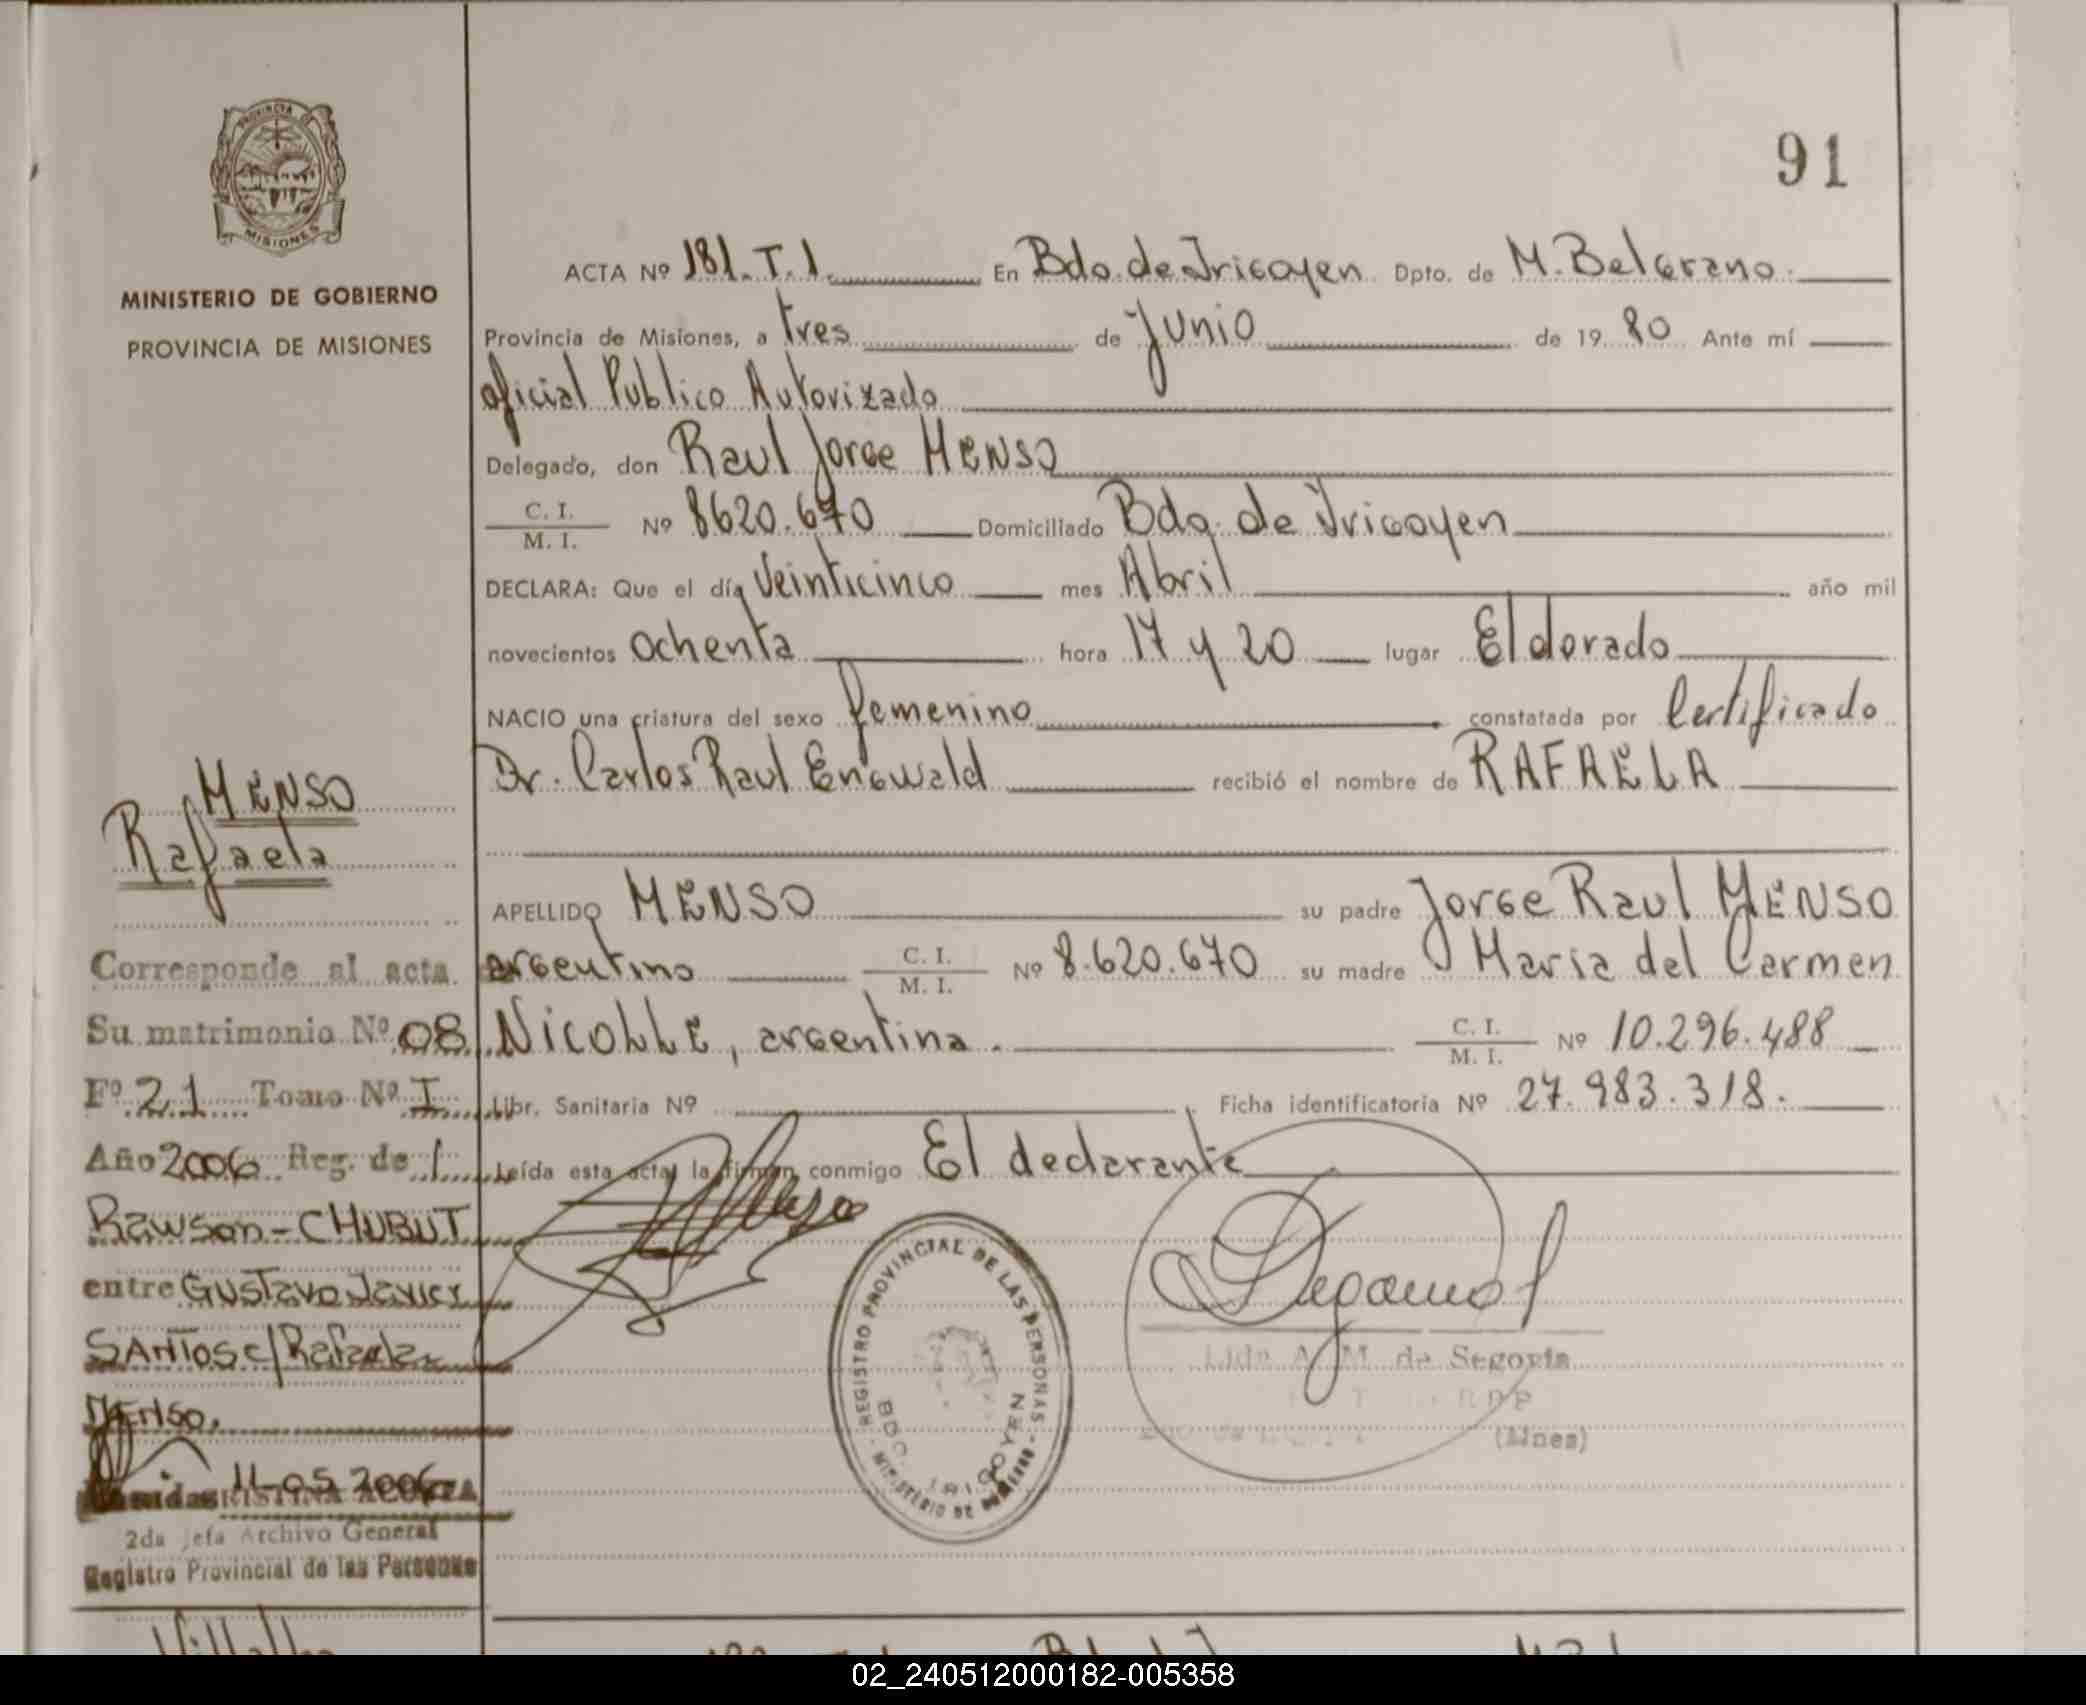 PROVINCIA
MISIONES
MINISTERIO DE GOBIERNO
PROVINCIA DE MISIONES
91
ACTA Nº 181. T. 1. En Bdo. de Irigoyen Dpto. de M. Belgrano.
Provincia de Misiones, a tres de Junio de 19 80 Ante mí
oficial Publico Autorizado
Delegado, don Raul Jorge MENSO
C. I.
M. I. Nº 8620.670 Domiciliado Bdo. de Irigoyen
DECLARA: Que el día Veinticinco mes Abril año mil
novecientos ochenta hora 17 y 20 lugar Eldorado
NACIO una criatura del sexo femenino constatada por Certificado
Dr. Carlos Raul Engwald recibió el nombre de RAFAELA
APELLIDO MENSO su padre Jorge Raul MENSO
argentino C. I.
M. I. Nº 8.620.670 su madre Maria del Carmen
NICOLLE, argentina. C. I.
M. I. Nº 10.296.488
Libr. Sanitaria Nº Ficha identificatoria Nº 27.983.318.
Leída esta acta, la firman conmigo El declarante
MENSO
Rafaela
Corresponde al acta
Su matrimonio Nº 08
Fº 21 Tomo Nº I
Año 2006 Reg. de 1
Rawson - CHUBUT
entre Gustavo Javier
SANTOS c/ Rafaela
Menso.
11-05 2006
CRISTINA ACOSTA
2da Jefa Archivo General
Registro Provincial de las Personas
REGISTRO PROVINCIAL DE LAS PERSONAS
BDO. IRIGOYEN
MINISTERIO DE GOBIERNO
Lida A. M. de Segovia
(Mnes)
02_240512000182-005358